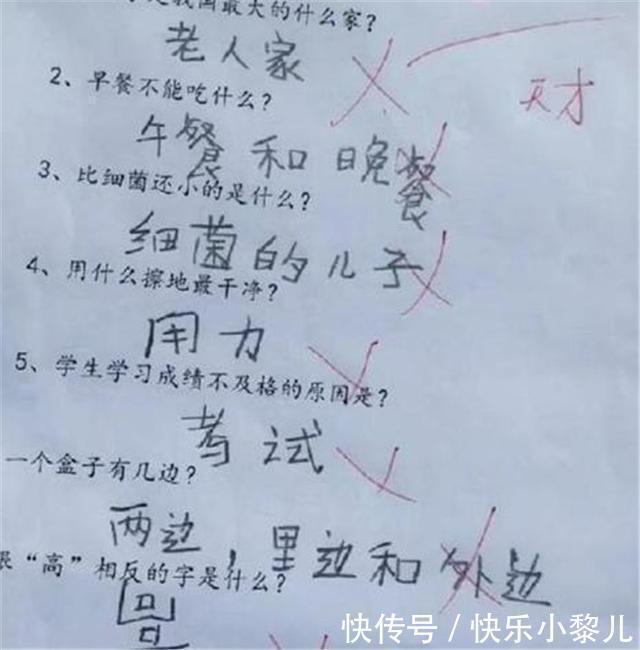 是我国最大的什么家?
老人家
天才
2、早餐不能吃什么?
午餐和晚餐
3、比细菌还小的是什么?
细菌的儿子
4、用什么擦地最干净?
用力
5、学生学习成绩不及格的原因是?
考试
一个盒子有几边?
两边，里边和外边
“高”相反的字是什么?
快传号 / 快乐小黎儿